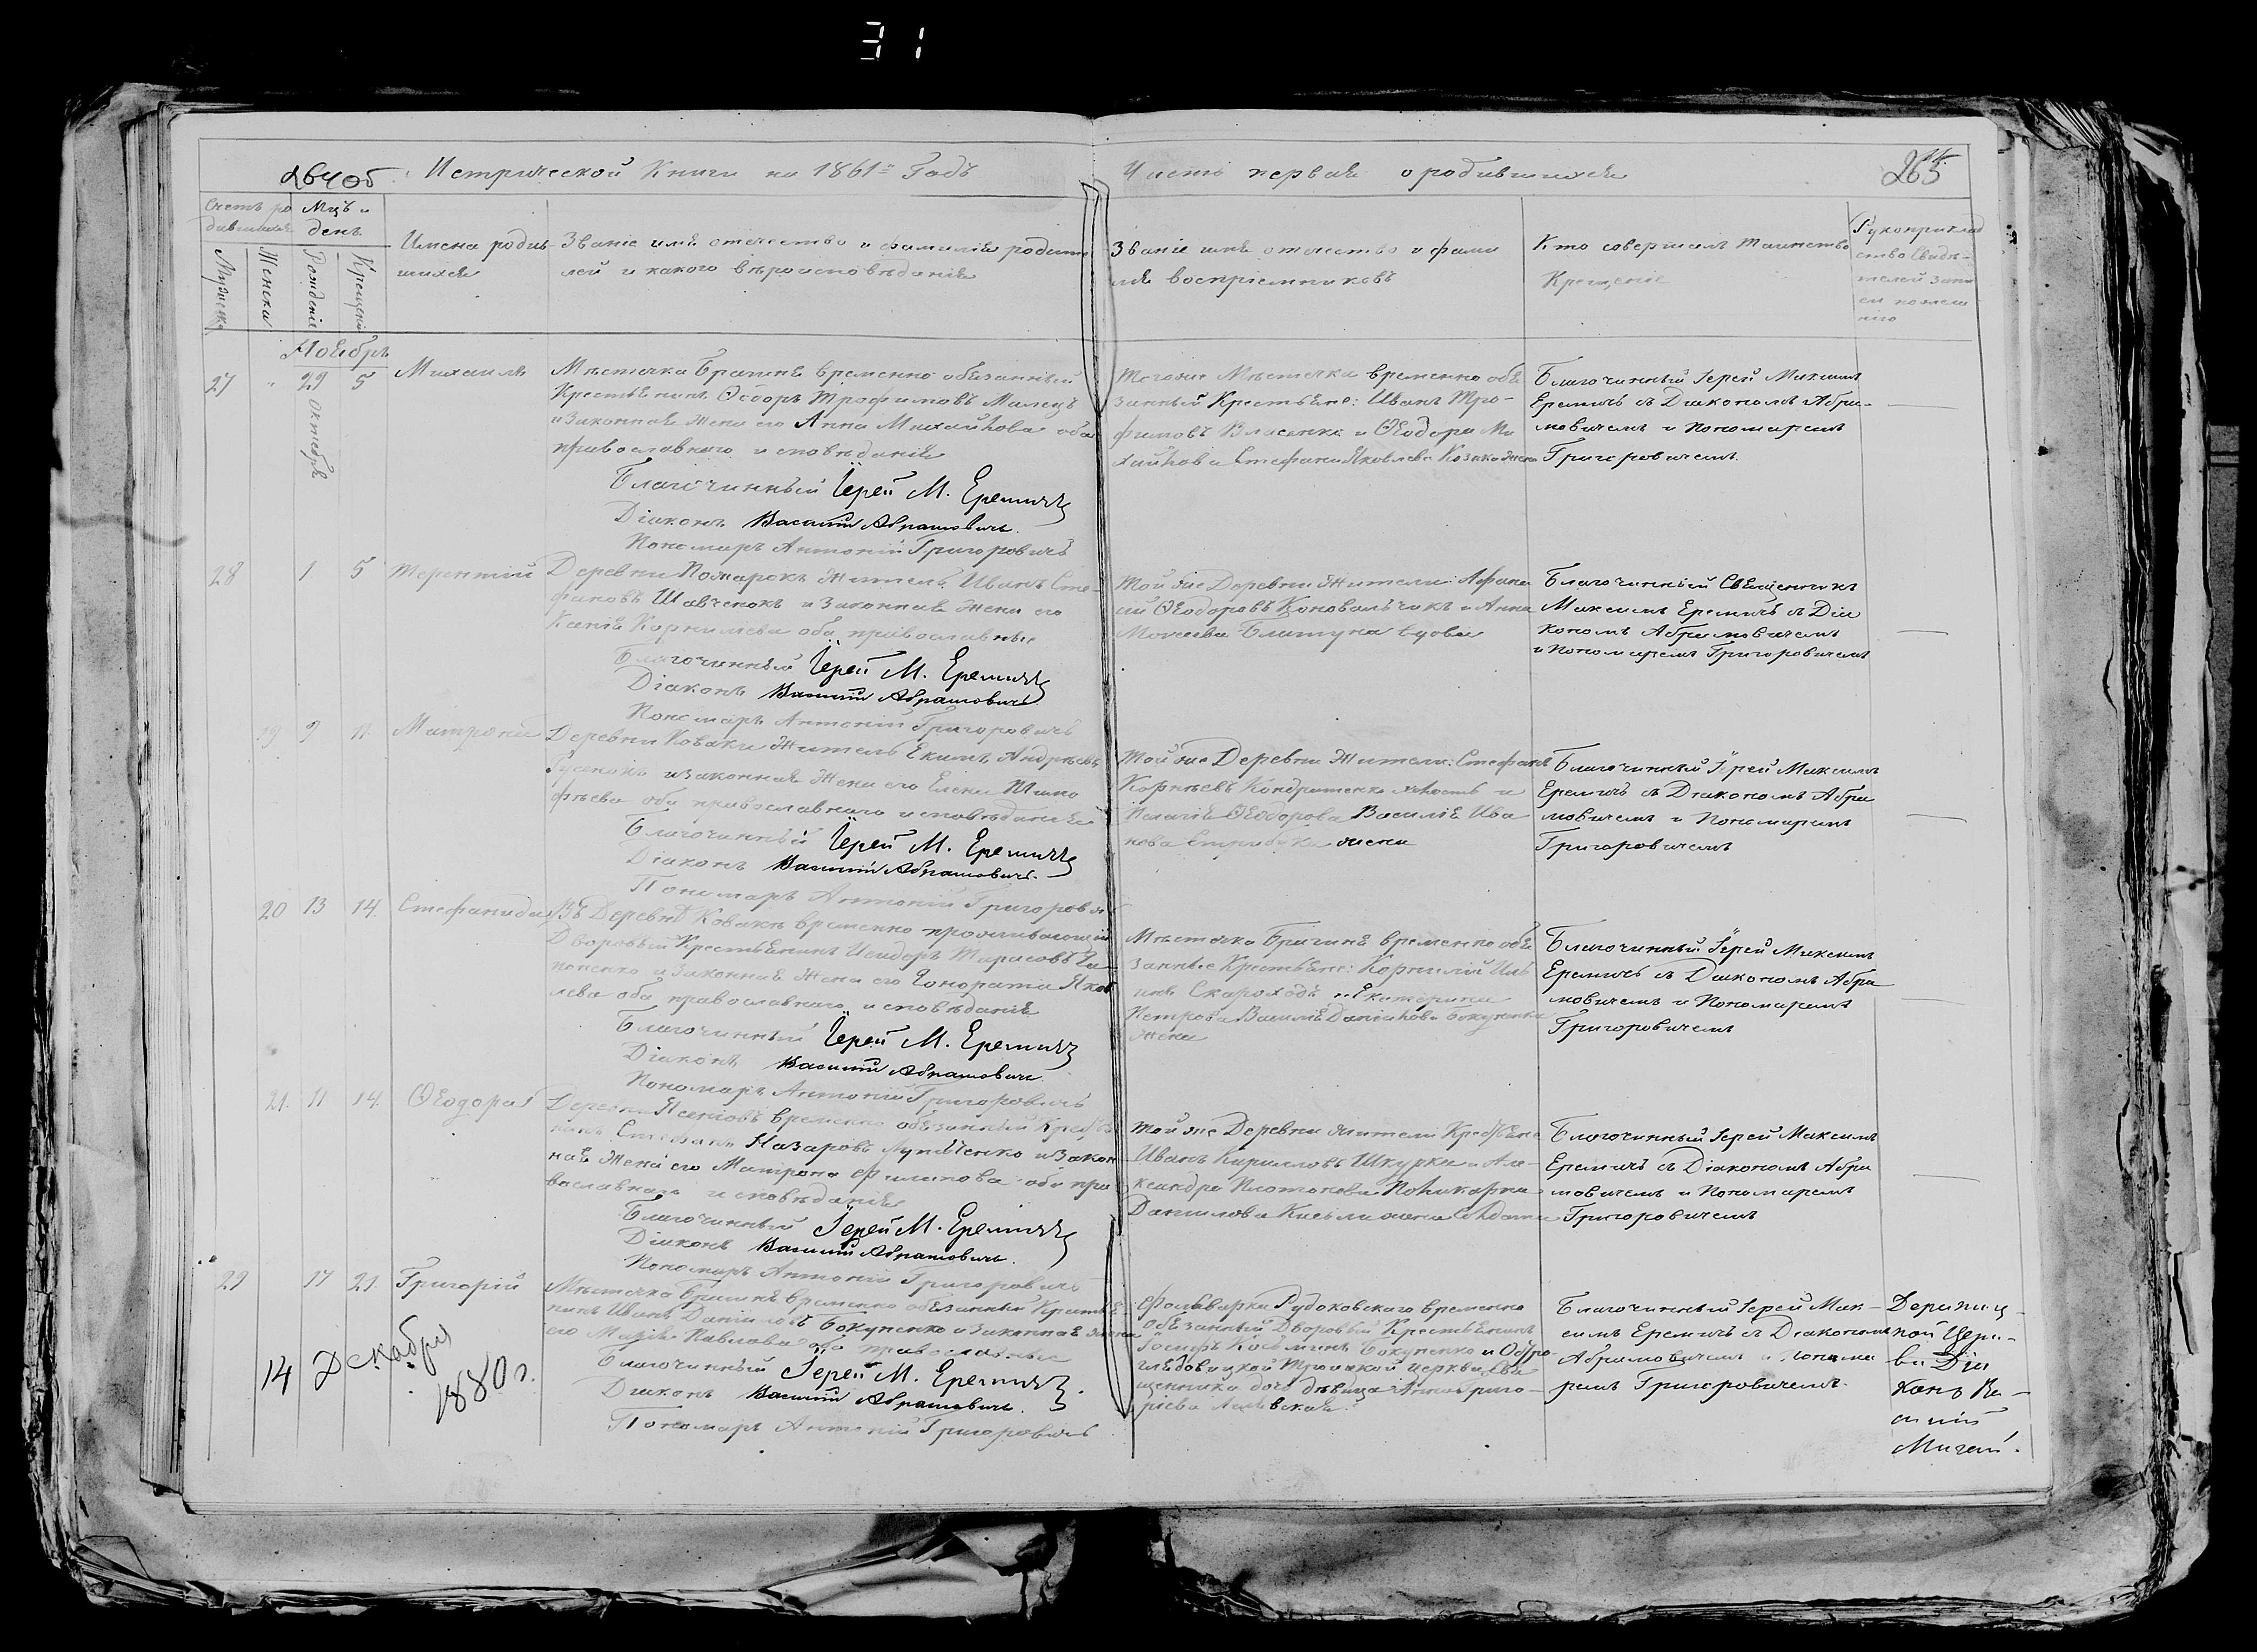 31
264 об
Метрической Книги на 1861й Годъ
Часть первая о родившихся
265
Счетъ ро
дившихся
Мцъ и
день
Мужеска
Женска
Рожденіе
Крещені
Имена родив-
шихся
Званіе имя отечество и фамилія родите
лей и какого вѣроисповѣданія
Званіе имя отчество и фами
лія воспріемниковъ
Кто совершалъ таинство
Крещеніе
Рукоприклад
ство Свидѣ-
телей запи
си по жела
нію
Ноябрь
27 " 29 5 Михаилъ
Октября
Мѣстечка Брагиня временно обязанный
Крестьянинъ Ѳеодоръ Трофимовъ Малецъ
и законная жена его Анна Михайлова оба
православнаго исповѣданія
Благочинный Іерей М. Еремичъ
Діаконъ Василій Абрамовичъ.
Пономарь Антоній Григоровичъ
Тогоже Мѣстечка временно обя
занный Крестьяне: Иванъ Тро-
фимовъ Власенко и Ѳеодора Ми
хайлова Стефана Яковлева Козака жена
Благочинный Іерей Максимъ
Еремичъ съ Діакономъ Абра-
мовичемъ и пономаремъ
Григоровичемъ.
28 1 5 Терентій
Деревни Пожарокъ Житель Иванъ Сте-
фановъ Шавченокъ и Законная жена его
Ксенія Корниліева оба православные
Благочинный Іерей М. Еремичъ
Діаконъ Василій Абрамовичъ
Пономарь Антоній Григоровичъ
Той же Деревни Жители: Афана
сій Ѳеодоровъ Коновальчикъ и Анна
Моисеева вдова
Благочинный Священникъ
Максимъ Еремичъ съ Діа
кономъ Абрамовичемъ
и Пономаремъ Григоровичемъ
19 9 11 Матрона
Деревни Коваки Житель Екимъ Андреевъ
Гусенокъ и законная жена его Елена Тимо
фѣева оба православнаго исповѣданія
Благочинный Іерей М. Еремичъ
Діаконъ Василій Абрамовичъ.
Пономарь Антоній Григоровичъ
Той же Деревни Жители: Стефанъ
Корнѣевъ Кондратенко и
Пелагія Ѳеодорова Василія Ива
нова жена
Благочинный Іерей Максимъ
Еремичъ съ Діакономъ Абра
мовичемъ и Пономаремъ
Григоровичемъ
20 13 14 Стефанида
Въ Деревнѣ Ковакѣ временно проживающій
Дворовый Крестьянинъ Исидоръ Тарасовъ Га
поненко и Законная жена его Гонората Яков
лева оба православнаго исповѣданія
Благочинный Іерей М. Еремичъ
Діаконъ Василій Абрамовичъ
Пономарь Антоній Григоровичъ
Мѣстечка Брагиня временно обя
занные Крестьяне: Корнилій Иль
инъ Скороходъ и Екатерина
Петрова Василія Данилова Бокуненка
жена
Благочинный Іерей Максимъ
Еремичъ съ Діакономъ Абра
мовичемъ и Пономаремъ
Григоровичемъ
21. 11 14. Ѳеодора
Деревни временно обязанный Крестья
нинъ Стефанъ Назаровъ и Закон
ная жена его Матрона Филипова оба пра
вославнаго исповѣданія
Благочинный Іерей М. Еремичъ
Діаконъ Василій Абрамовичъ.
Пономарь Антоній Григоровичъ
Той же Деревни жители Крестьяне
Иванъ Кириловъ Шкурка и Але-
ксандра Платонова Поликарпа
Данилова жена Солдата
Благочинный Іерей Максимъ
Еремичъ съ Діакономъ Абра
мовичемъ и Пономаремъ
Григоровичемъ
29 17 21. Григорій
Мѣстечка Брагиня временно обязанный Крестья
нинъ Иванъ Даниловъ Бокуненко и Законная жена
его Марія Павлова оба православные
Благочинный Іерей М. Еремичъ.
Діаконъ Василій Абрамовичъ.
Пономарь Антоній Григоровичъ
14 Декабря
1880 г.
Фольварка Рудоковскаго временно
обязанный Дворовый Крестьянинъ
Іосифъ Косьминъ Бокуненко и
Троицкой церкви Свя
щенника дочь дѣвица Анна Григо-
ріева
Благочинный Іерей Мак-
симъ Еремичъ съ Діакономъ
Абрамовичемъ и Понома
ремъ Григоровичемъ.
Церк-
ви Діа
конъ Ва-
силій